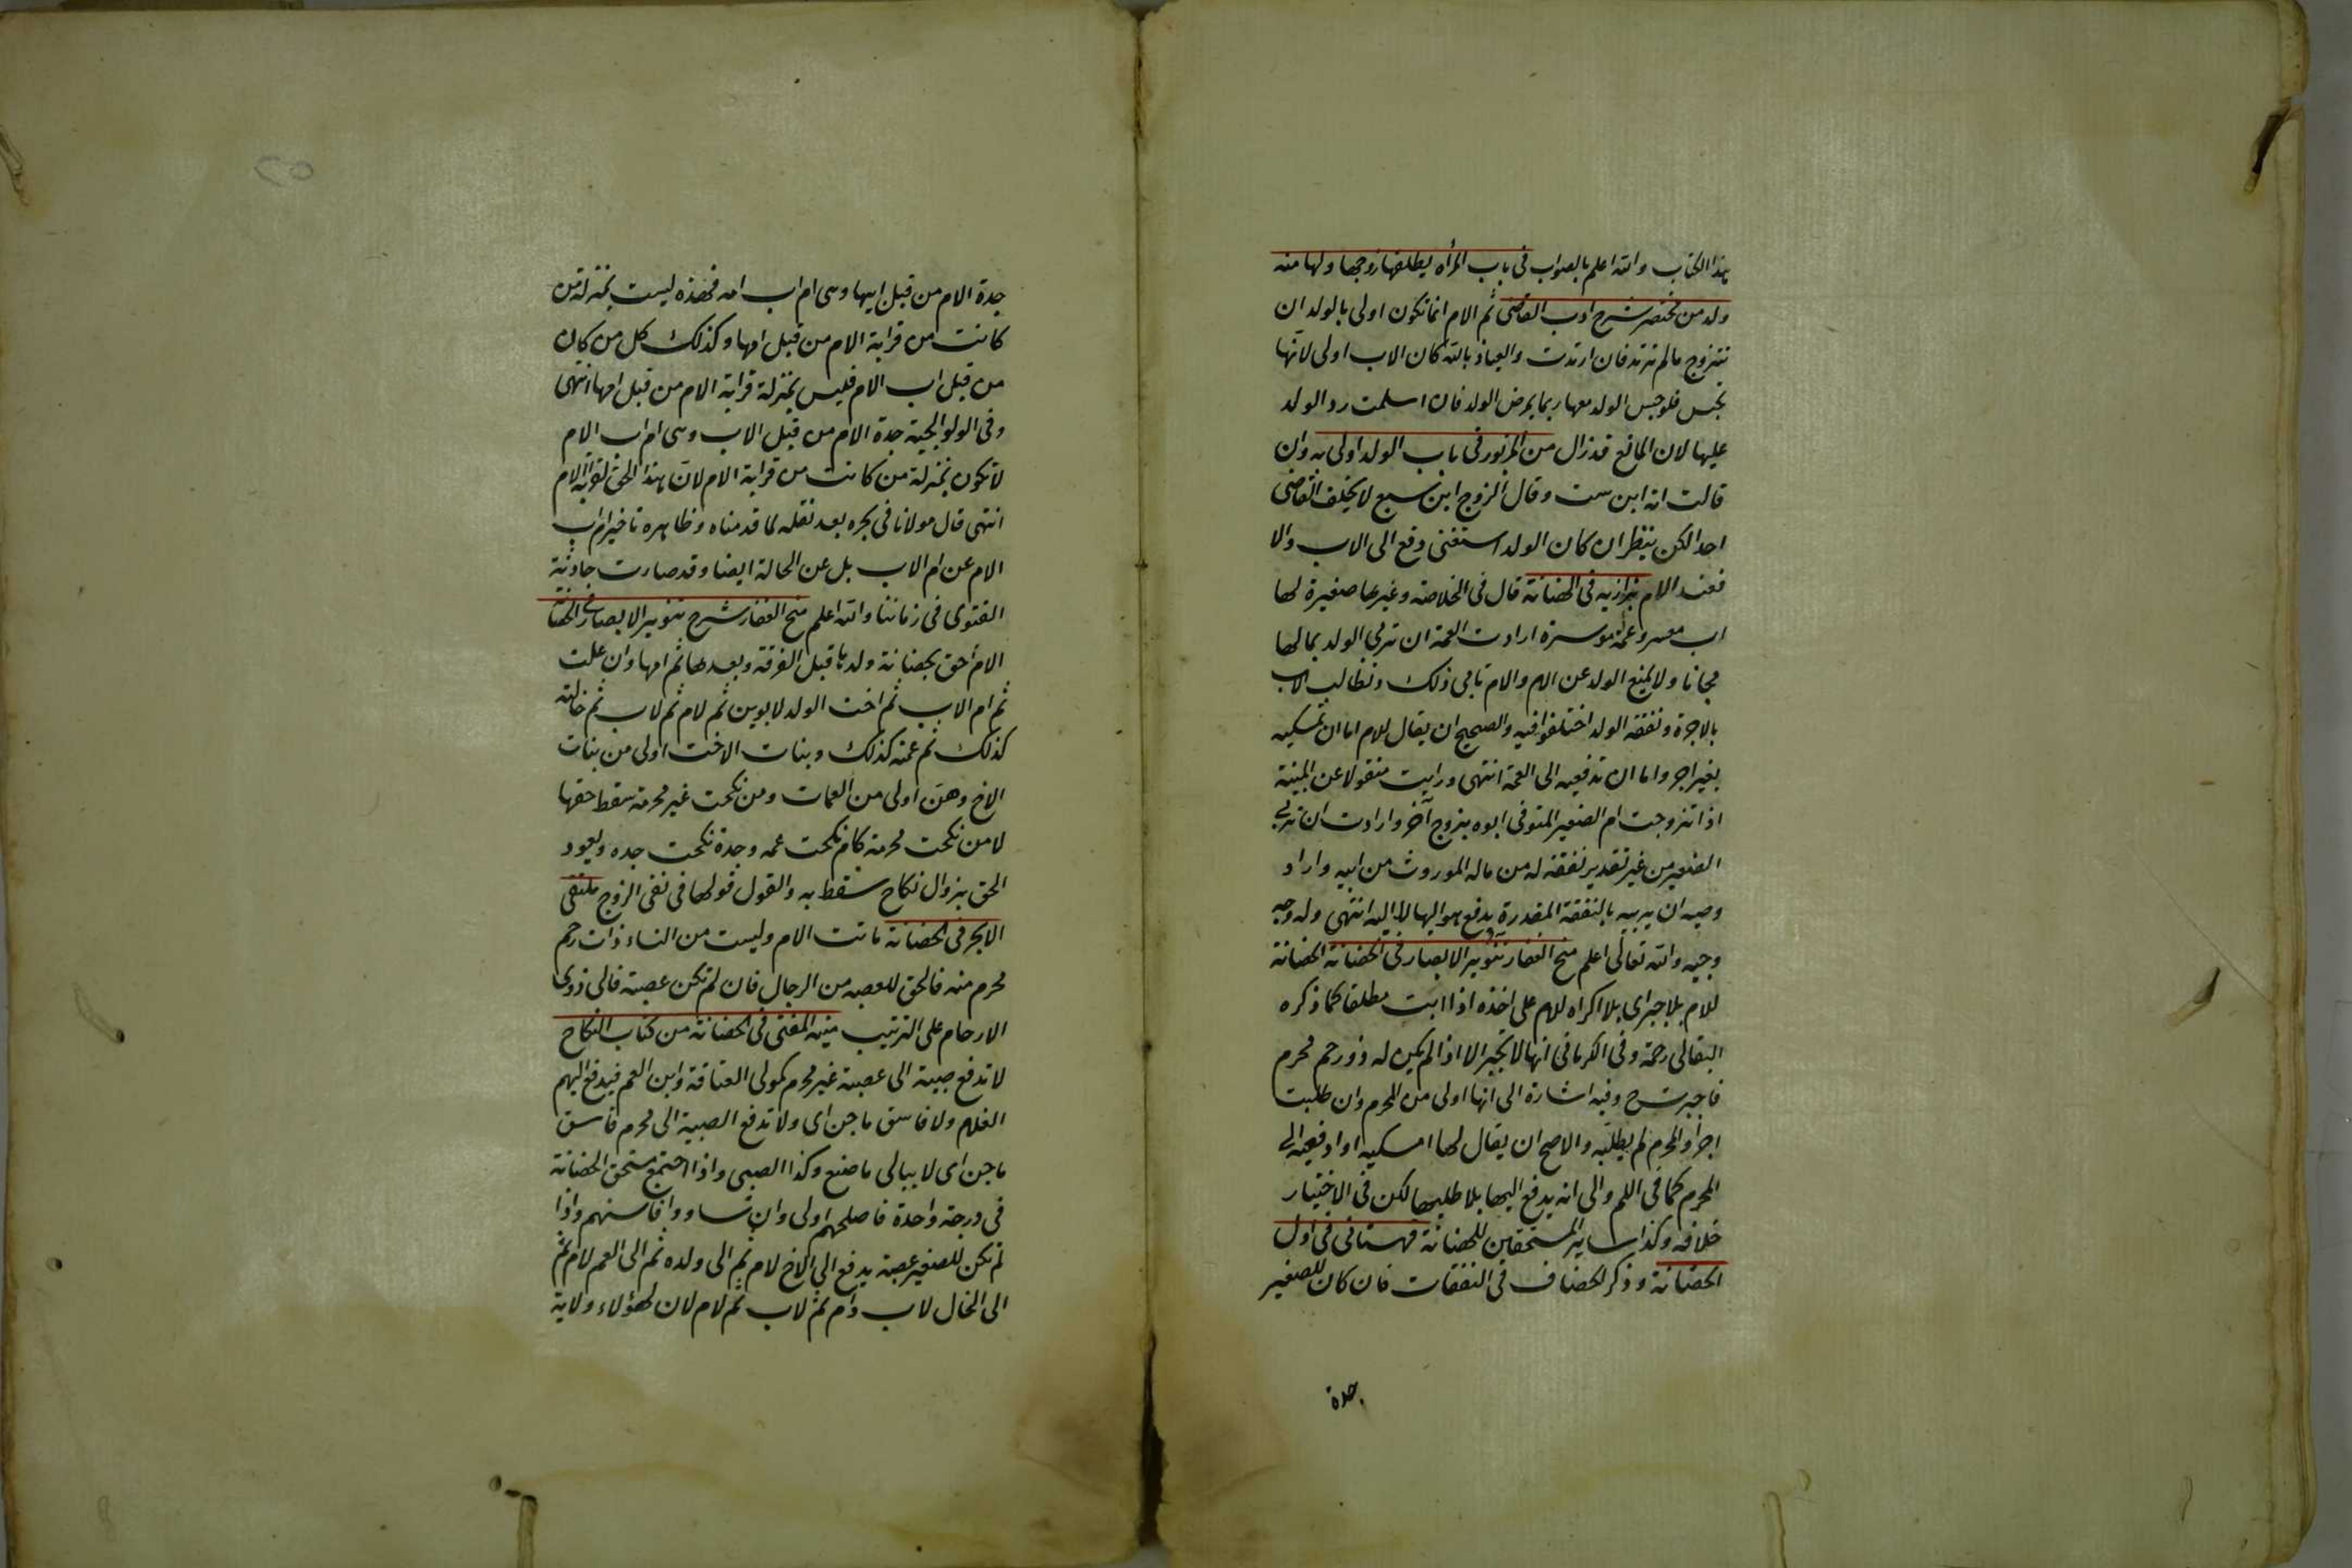 هذا الكتاب والله اعلم بالصواب فى باب المرأه يطلقها زوجها ولها منه
ولد من مختصر شرح ادب القاضى ثم الام انما تكون اولى بالولد ان
تتزوج مالم ترتد فان ارتدت والعياذ بالله كان الاب اولى لانها
تحبس فلو حبس الولد معها ربما يمرض الولد فان اسلمت رد الولد
عليها لان المانع قد زال من المزبور فى باب الولد اولى به وان
قالت انه ابن ست وقال الزوج ابن سبع لا يحلف القاضى
احدا لكن ينظر ان كان الولد استغنى دفع الى الاب والا
فعند الام بزازيه فى الحضانة قال فى الخلاصه وغيرها صغيرة لها
اب معسر وعمة موسرة ارادت العمة ان تربى الولد بمالها
مجانا ولا يمنع الولد عن الام والام تابى ذلك وتطالب الاب
بالاجرة ونفقه الولد اختلفوا فيه والصحيح ان يقال للام اما ان تمسكيه
بغير اجر واما ان تدفعيه الى العمة انتهى ورايت منقولا عن المنية
اذا تزوجت ام الصغير المتوفى ابوه بزوج آخر وارادت ان تربى
الصغير من غير تقدير نفقة له من ماله الموروث من ابيه واراد
وصيه ان يربيه بالنفقة المقدرة يدفع هو اليها لا اليه انتهى وله وجه
وجيه والله تعالى اعلم منح الغفار تنوير الابصار فى الحضانة الحضانة
للام بلا جبر اى بلا اكراه للام على اخذه اذا ابت مطلقا كما ذكره
البقالى رحمة وفى الكرمانى انها لا تجبر الا اذا لم يكن له ذو رحم محرم
فاجبرت ح وفيه اشارة الى انها اولى من المحرم وان طلبت
اجرا والمحرم لم يطلبه والاصح ان يقال لها امسكيه او ادفعيه الى
المحرم كما فى اللم والى انه يدفع اليها بلا طلبها لكن فى الاختيار
خلافه وكذا ساير المستحقين للحضانة قهستانى فى اول
الحضانة وذكر الخصاف فى النفقات فان كان للصغير
جدة
جدة الام من قبل ابيها وهى ام اب امه فهذه ليست بمنزلة من
كانت من قرابة الام من قبل امها وكذلك كل من كان
من قبل اب الام فليس بمنزلة قرابة الام من قبل امها انتهى
وفى الولوالجية جدة الام من قبل الاب وهى ام اب الام
لا تكون بمنزلة من كانت من قرابة الام لان هذا الحق لقرابة الام
انتهى قال مولانا فى بحره بعد نقله لما قدمناه وظاهره تاخير ام اب
الام عن ام الاب بل عن الخالة ايضا وقد صارت حادثة
الفتوى فى زماننا والله اعلم منح الغفار شرح تنوير الابصار فى الحضا
الام احق بحضانة ولدها قبل الفرقة وبعدها ثم امها وان علت
ثم ام الاب ثم اخت الولد لابوين ثم لام ثم لاب ثم خالته
كذلك ثم عمته كذلك وبنات الاخت اولى من بنات
الاخ وهن اولى من العمات ومن نكحت غير محرمه سقط حقها
لا من نكحت محرمه كام نكحت عمه وجدة نكحت جده ويعود
الحق بزوال نكاح سقط به والقول قولها فى نفى الزوج ملتقى
الابحر فى الحضانة ماتت الام وليست من النساء ذات رحم
محرم منه فالحق للعصبه من الرجال فان لم تكن عصبة فالى ذوى
الارحام على الترتيب منيه المفتى فى الحضانة من كتاب النكاح
لا تدفع صبية الى عصبة غير محرم كمولى العتاقة وابن العم فيدفع اليهم
الغلام ولا فاسق ماجن اى ولا تدفع الصبية الى محرم فاسق
ماجن اى لا يبالى ما صنع وكذا الصبى واذا اجتمع مستحق الحضانة
فى درجة واحدة فاصلحهم اولى وان تساووا فاسنهم واذا
لم تكن للصغير عصبة يدفع الى الاخ لام ثم الى ولده ثم الى العم لام ثم
الى الخال لاب وام ثم لاب ثم لام لان لهؤلاء ولاية